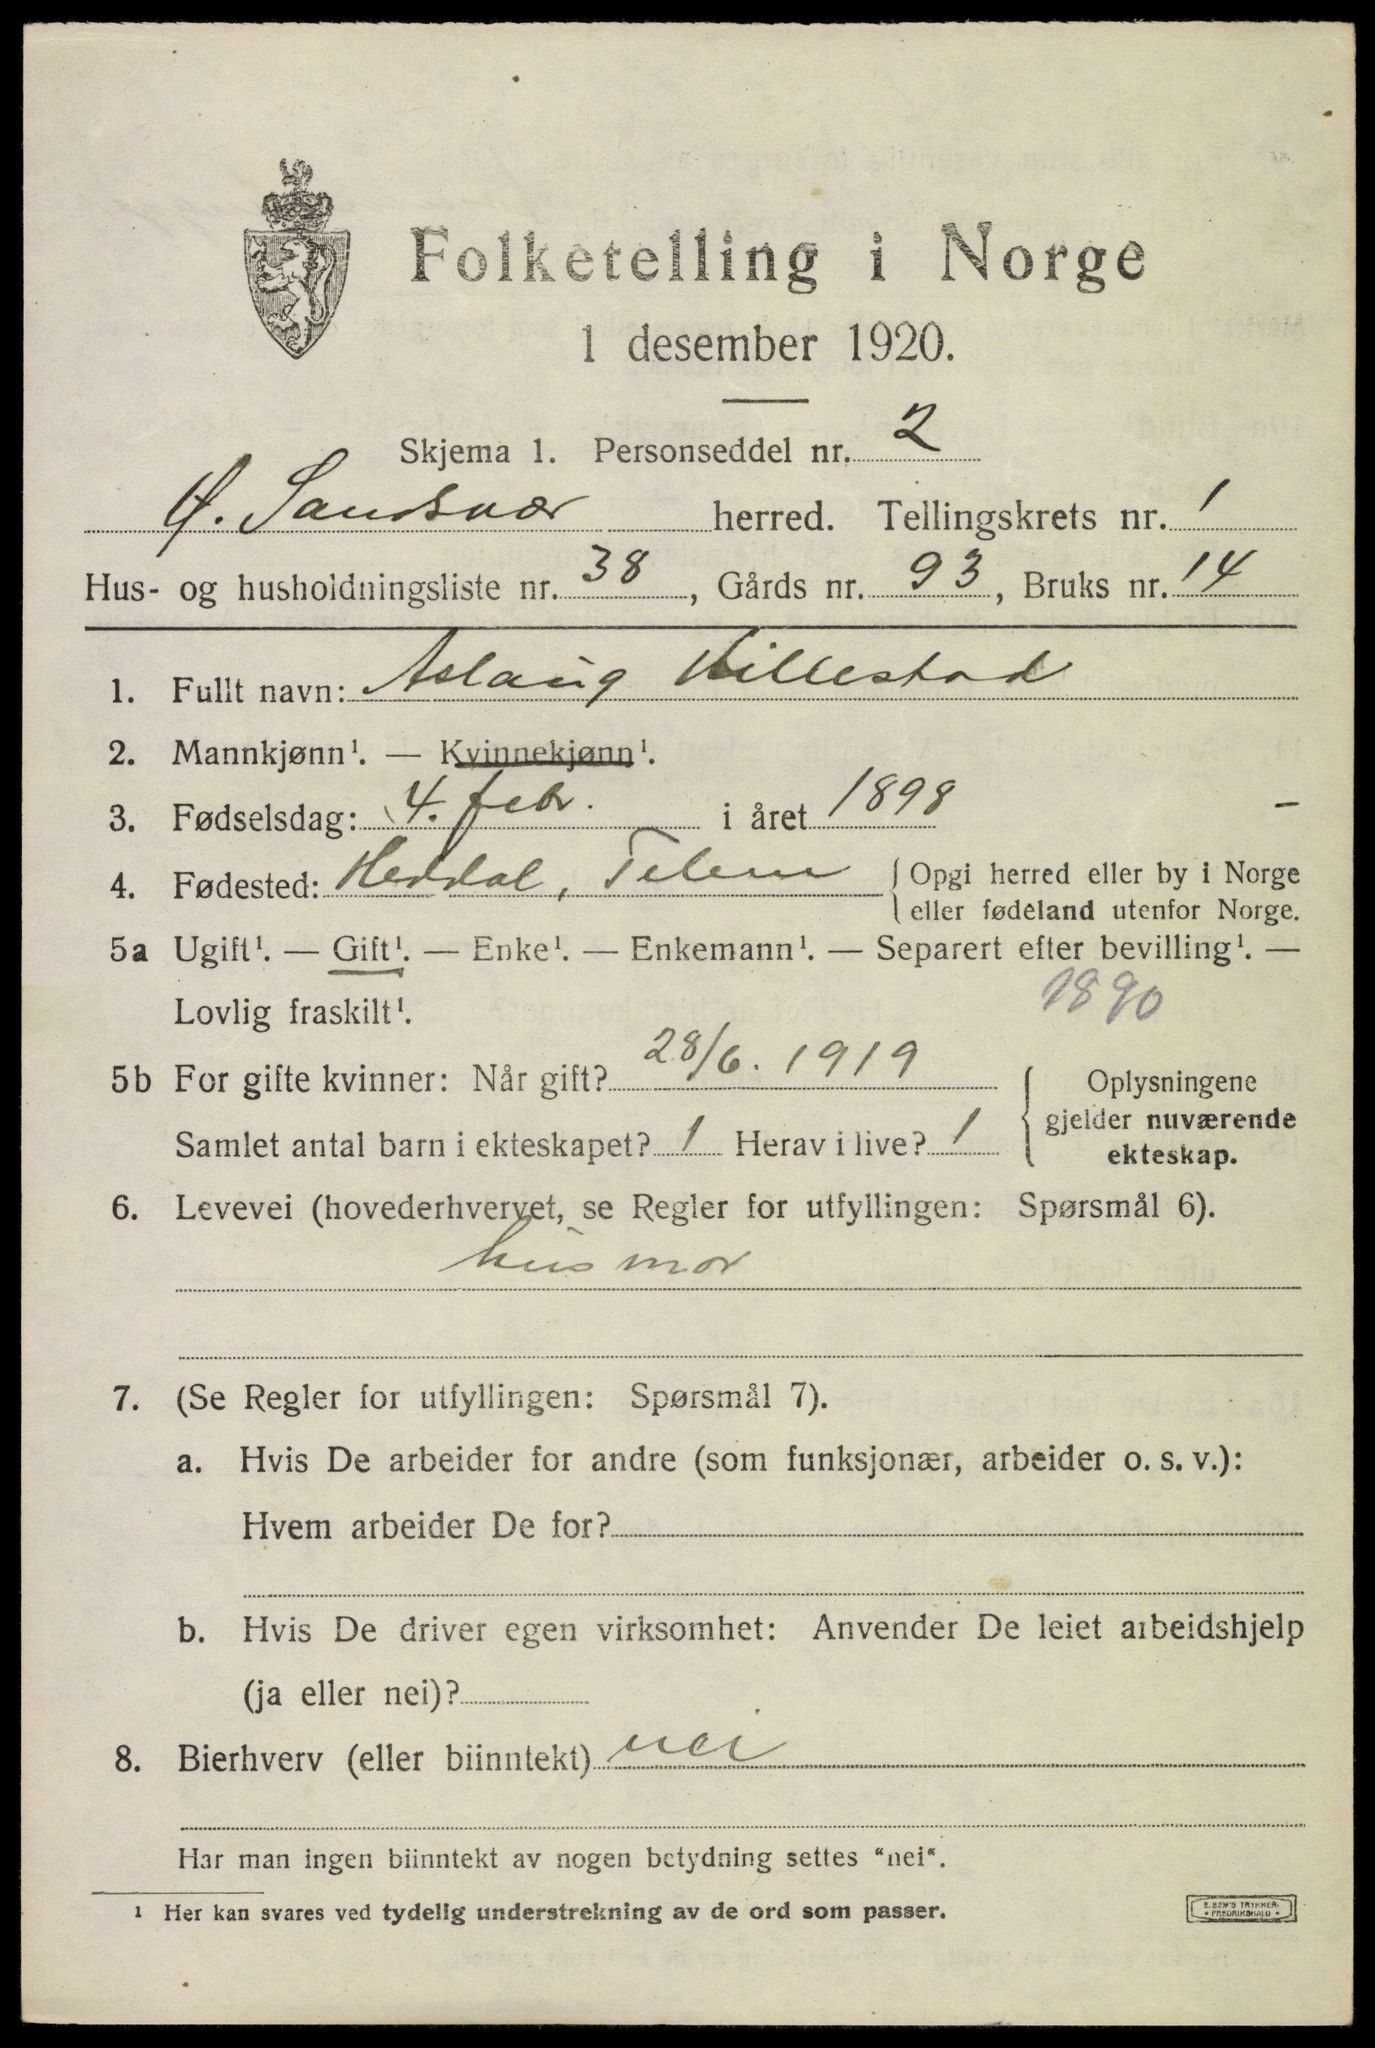 Folketelling i Norge
1 desember 1920.
Skjema 1. Personseddel nr. 2
Ø. Sandsvær herred. Tellingskrets nr. 1
Hus- og husholdningsliste nr. 38, Gårds nr. 93, Bruks nr. 14
1. Fullt navn: Aslaug Villestad
2. Mannkjønn¹. — Kvinnekjønn¹.
3. Fødselsdag: 4. febr. i året 1898 –
4. Fødested: Heddal, Telem { Opgi herred eller by i Norge
eller fødeland utenfor Norge.
5a Ugift¹. — Gift¹. — Enke¹. — Enkemann¹. — Separert efter bevilling¹. —
Lovlig fraskilt¹. 1890
5b For gifte kvinner: Når gift? 28/6. 1919
Samlet antal barn i ekteskapet? 1 Herav i live? 1
{ Oplysningene
gjelder nuværende
ekteskap.
6. Levevei (hovederhvervet, se Regler for utfyllingen: Spørsmål 6).
husmor
7. (Se Regler for utfyllingen: Spørsmål 7).
a. Hvis De arbeider for andre (som funksjonær, arbeider o. s. v.):
Hvem arbeider De for?
b. Hvis De driver egen virksomhet: Anvender De leiet arbeidshjelp
(ja eller nei)?
8. Bierhverv (eller biinntekt) nei
Har man ingen biinntekt av nogen betydning settes "nei".
¹ Her kan svares ved tydelig understrekning av de ord som passer.
E. SEM'S TRYKKERI
FREDRIKSHALD